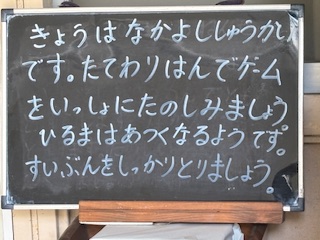 きょうはなかよししゅうかい
です。たてわりはんでゲーム
をいっしょにたのしみましょう。
ひるまはあつくなるようです。
すいぶんをしっかりとりましょう。